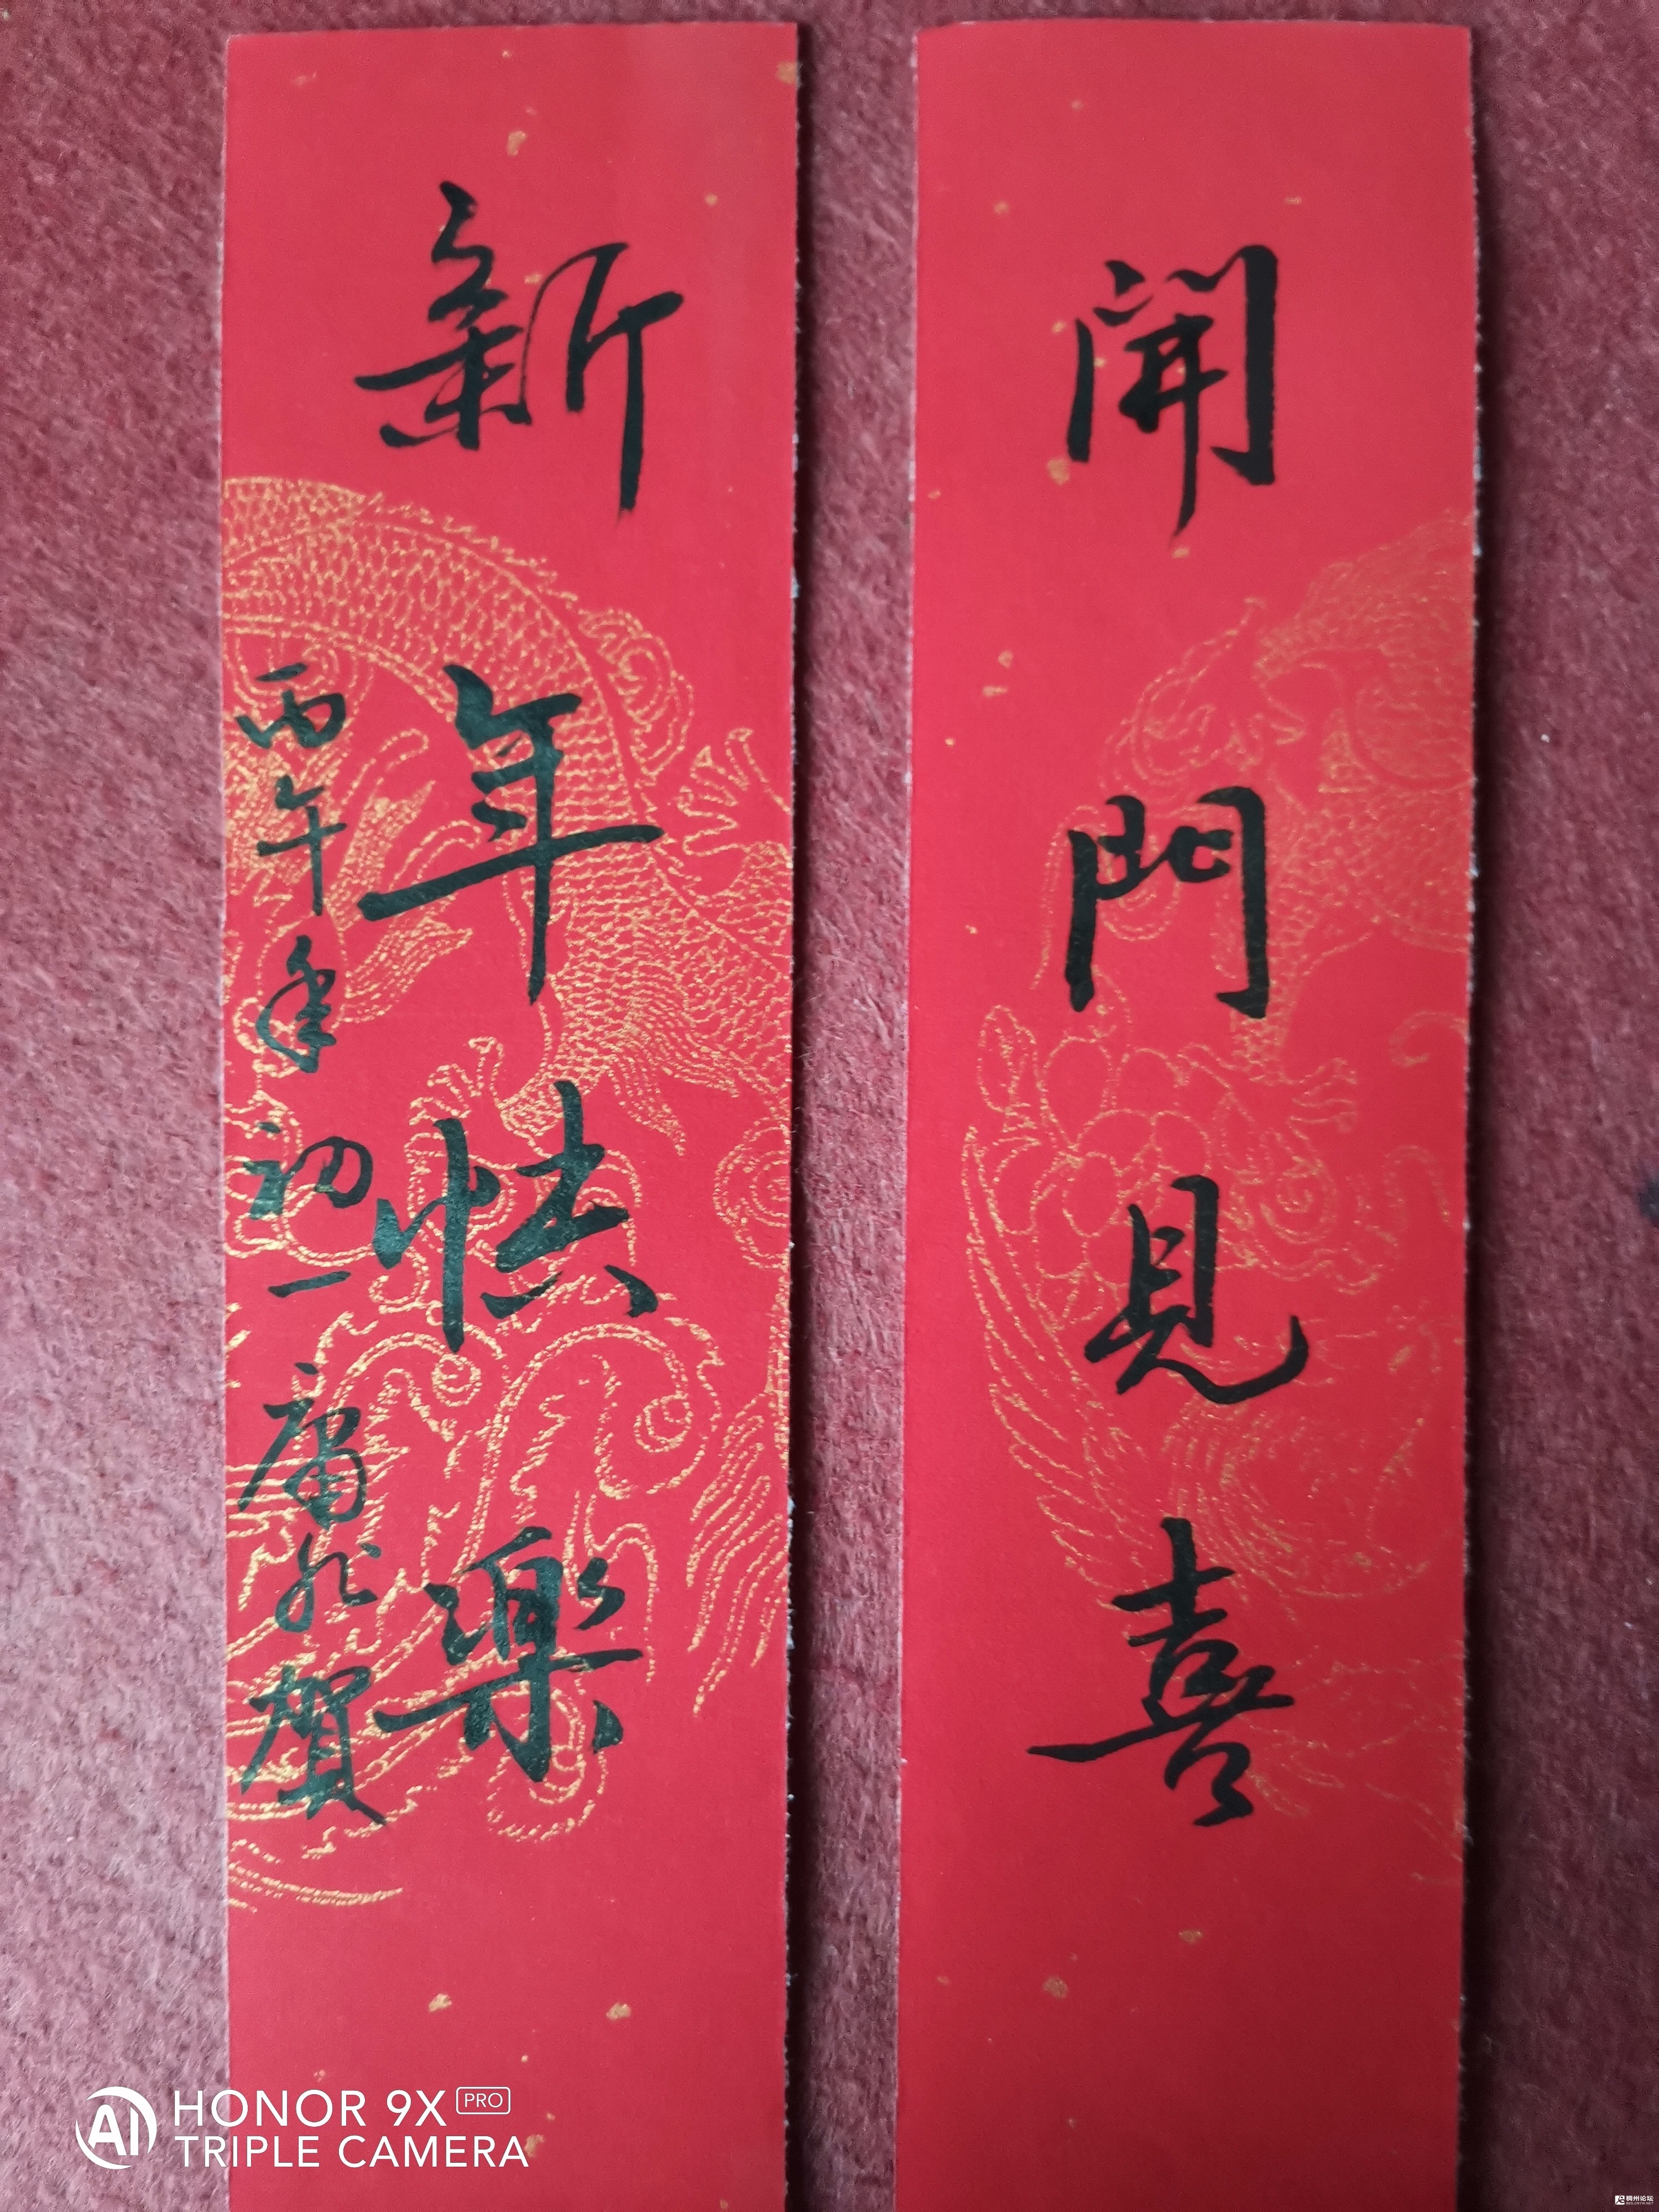 開門見喜
新年快樂
丙午年初一 賀
AI HONOR 9X PRO
TRIPLE CAMERA
稠州论坛